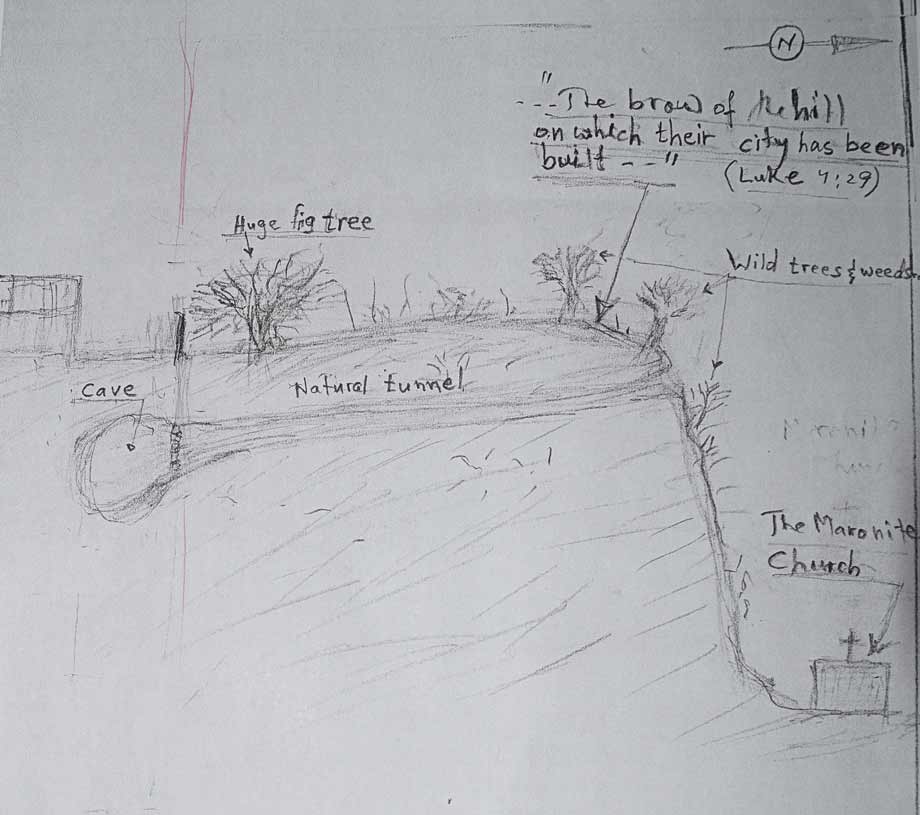 N
"
---The brow of the hill
on which their city has been
built --"
(Luke 4:29)
Huge fig tree
Wild trees & weeds
Cave
Natural tunnel
The Maronite
Church